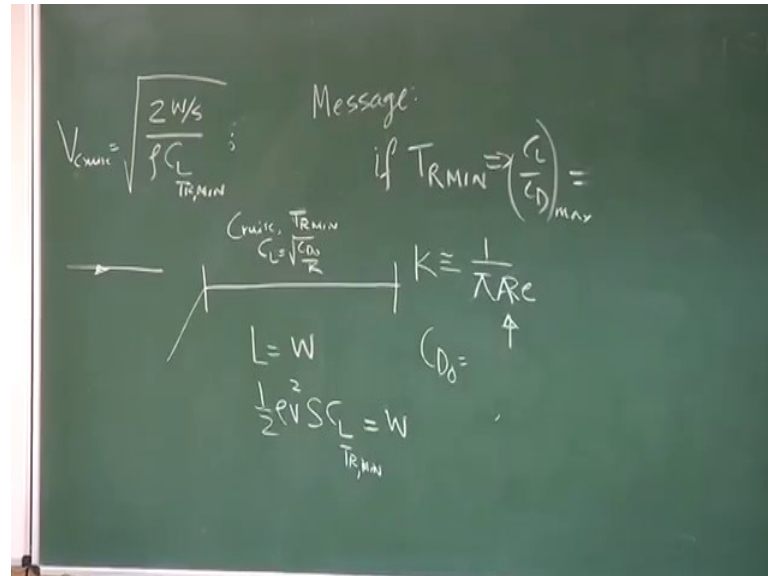 V_cruise = √(2W/S / ρ C_L_TR,MIN) ;
Message:
if T_RMIN ⇒ (C_L/C_D)_max =
Cruise, T_RMIN
C_L = √(C_D0/K)
K ≡ 1/(πARe)
↑
L = W
C_D0 =
1/2 ρV²SC_L_TR,MIN = W